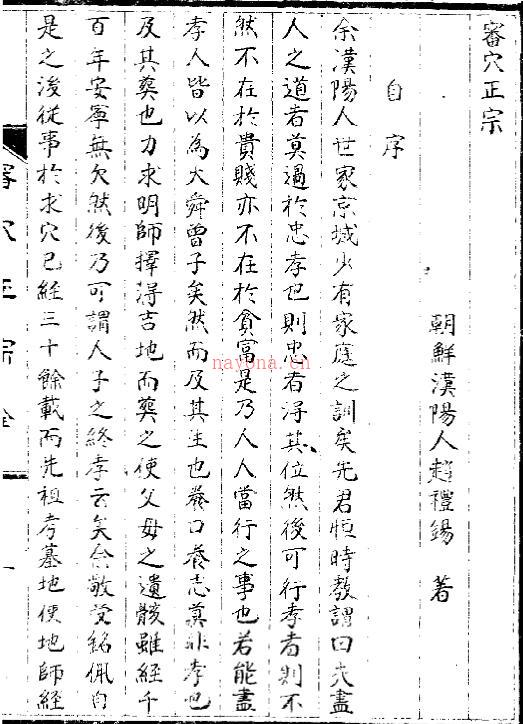 審穴正宗
朝鮮漢陽人趙禮錫 著
自序
余漢陽人世家京城少有家庭之訓矣先君恒時教謂曰夫盡
人之道者莫過於忠孝也則忠者淂其位然後可行孝者則不
然不在於貴賤亦不在於貧富是乃人人當行之事也若能盡
孝人皆以為大舜曾子矣然而及其生也養口養志莫非孝也
及其葬也力求明師擇淂吉地而葬之使父母之遺骸雖經千
百年安寧無欠然後乃可謂人子之終孝云矣余敬受銘佩自
是之後從事於求穴已經三十餘載而先祖考墓地便地師經
審穴正宗全
一
nayona.cn